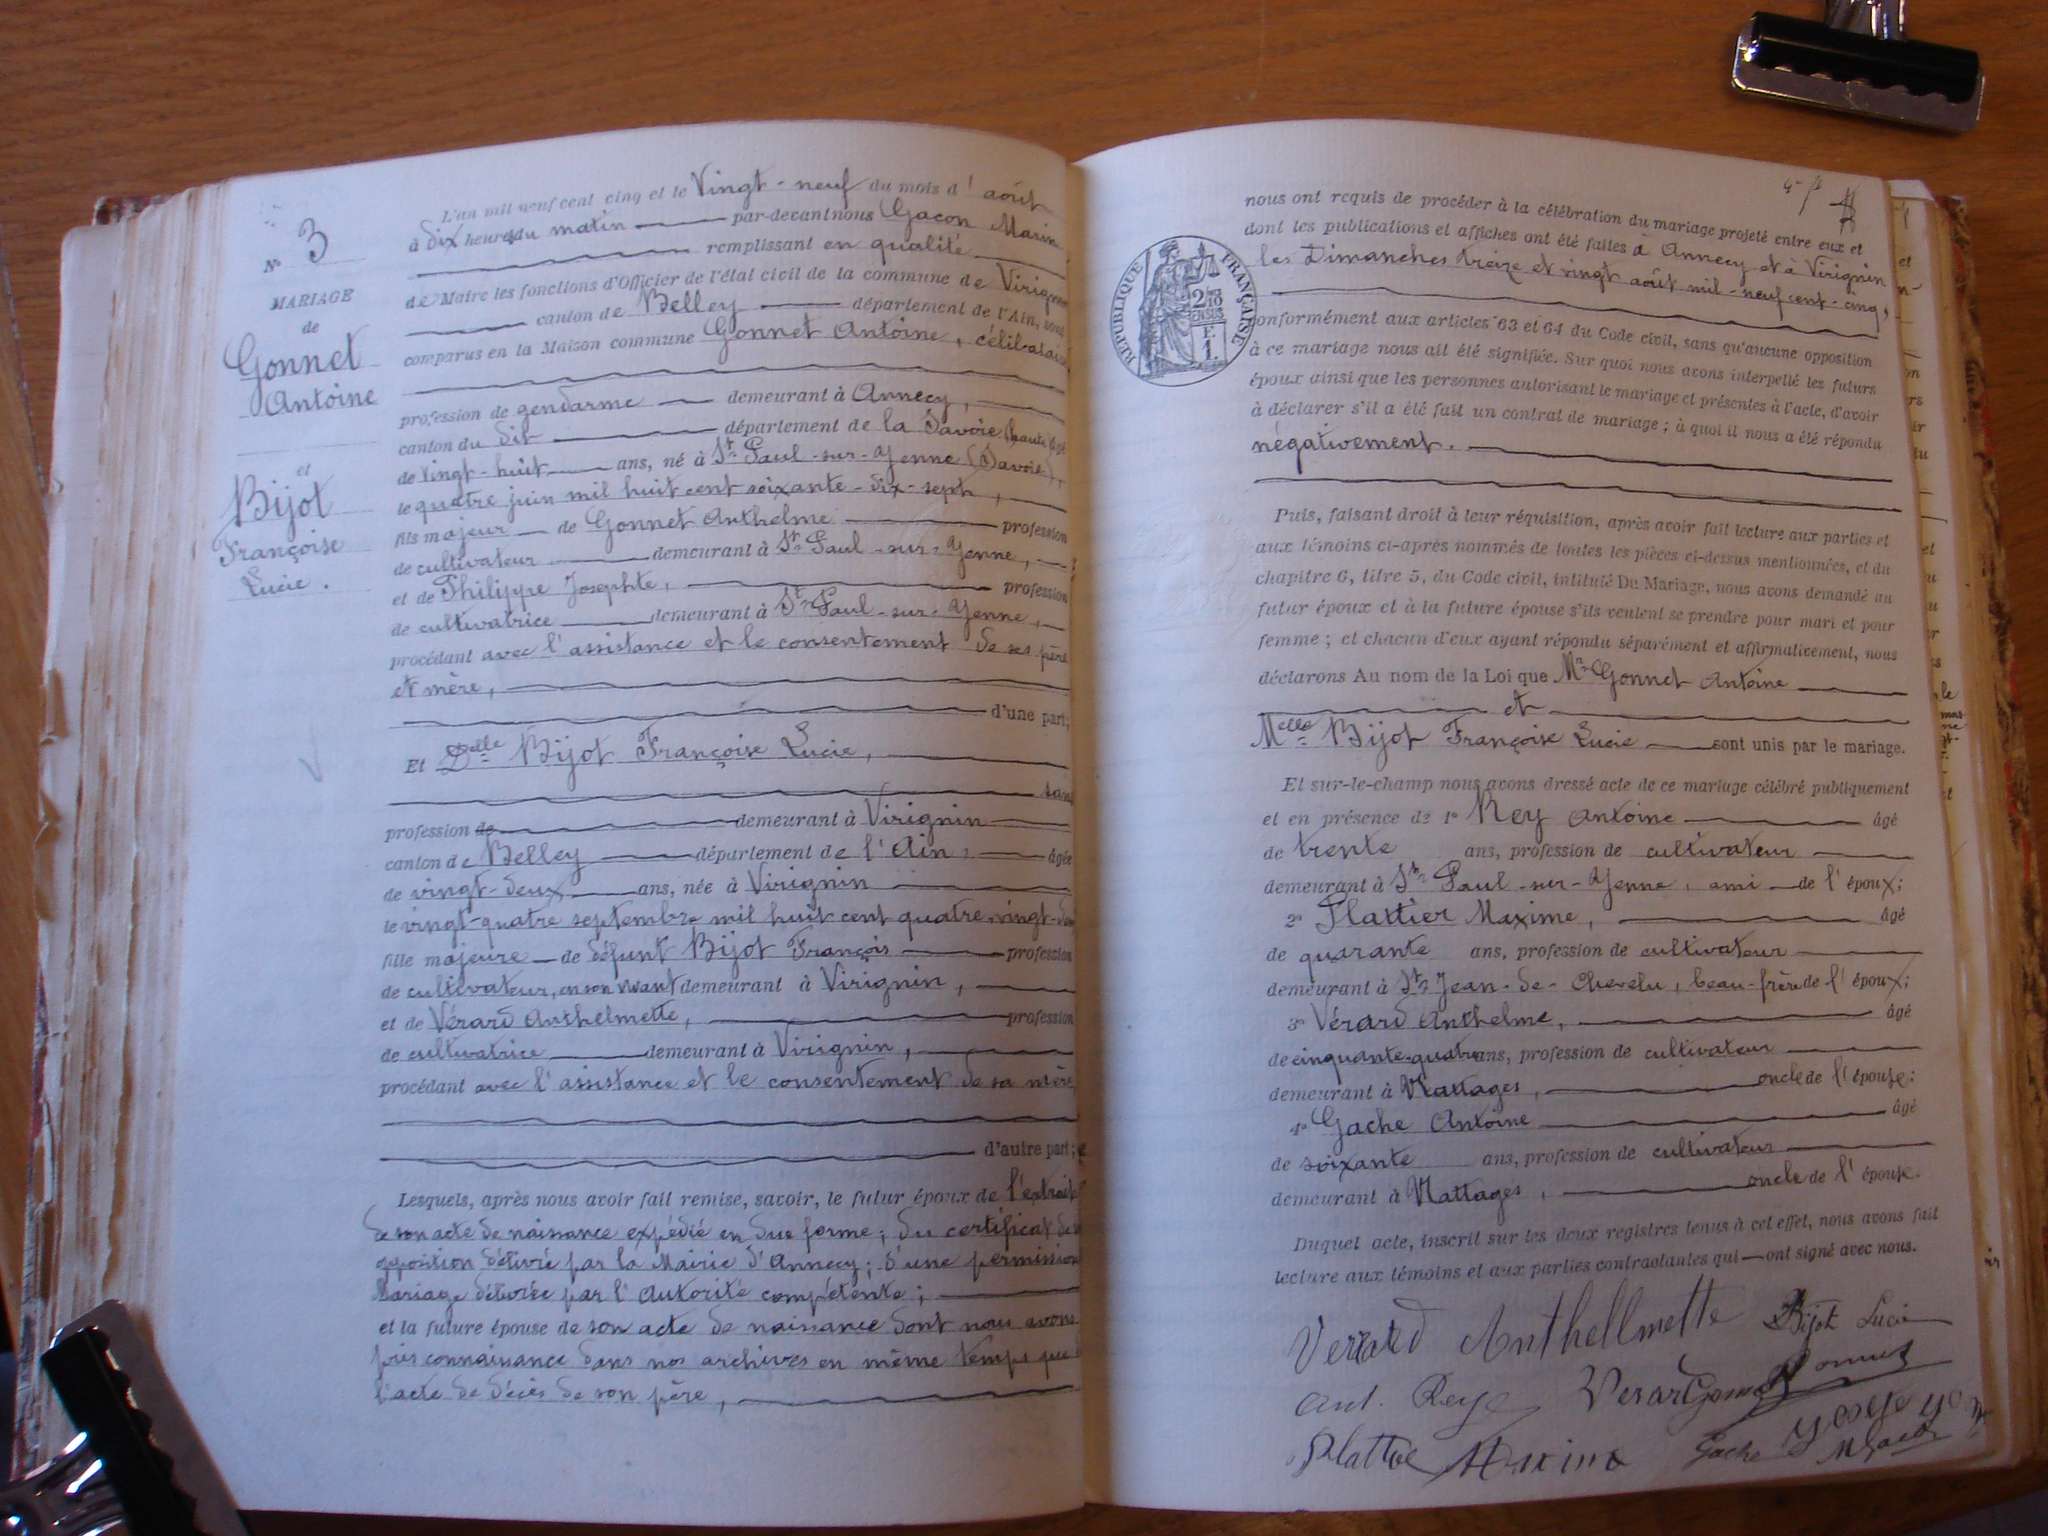 N° 3
MARIAGE
de
Gonnet
Antoine
et
Bijot
Françoise
Lucie.
L'an mil neuf cent cinq et le Vingt-neuf du mois d'août
à dix heures du matin par-devant nous Gacon Marin
remplissant en qualité
de Maire les fonctions d'Officier de l'état civil de la commune de Virignin
canton de Belley département de l'Ain, sont
comparus en la Maison commune Gonnet Antoine, célibataire
profession de gendarme demeurant à Annecy,
canton du dit département de la Savoie (haute) âgé
de vingt-huit ans, né à St Paul-sur-Yenne (Savoie),
le quatre juin mil huit cent soixante-dix-sept,
fils majeur de Gonnet Anthelme profession
de cultivateur demeurant à St Paul-sur-Yenne,
et de Philippe Josephte, profession
de cultivatrice demeurant à St Paul-sur-Yenne,
procédant avec l'assistance et le consentement de ses père
et mère,
d'une part;
Et Delle Bijot Françoise Lucie,
sans
profession de demeurant à Virignin
canton de Belley département de l'Ain, âgée
de vingt-deux ans, née à Virignin
le vingt-quatre septembre mil huit cent quatre-vingt-deux
fille majeure de défunt Bijot François profession
de cultivateur, en son vivant demeurant à Virignin,
et de Vérard Anthelmette, profession
de cultivatrice demeurant à Virignin,
procédant avec l'assistance et le consentement de sa mère
d'autre part;
Lesquels, après nous avoir fait remise, savoir, le futur époux de l'extrait
de son acte de naissance expédié en due forme; du certificat de
opposition délivré par la Mairie d'Annecy; d'une permission
Mariage délivrée par l'Autorité compétente;
et la future épouse de son acte de naissance dont nous avons
pris connaissance dans nos archives en même temps que
l'acte de décès de son père,
RÉPUBLIQUE FRANÇAISE
2/10 EN SUS
E.
1.
nous ont requis de procéder à la célébration du mariage projeté entre eux et
dont les publications et affiches ont été faites à Annecy et à Virignin
les Dimanches treize et vingt août mil-neuf cent-cinq,
conformément aux articles 63 et 64 du Code civil, sans qu'aucune opposition
à ce mariage nous ait été signifiée. Sur quoi nous avons interpellé les futurs
époux ainsi que les personnes autorisant le mariage et présentes à l'acte, d'avoir
à déclarer s'il a été fait un contrat de mariage; à quoi il nous a été répondu
négativement.
Puis, faisant droit à leur réquisition, après avoir fait lecture aux parties et
aux témoins ci-après nommés de toutes les pièces ci-dessus mentionnées, et du
chapitre 6, titre 5, du Code civil, intitulé Du Mariage, nous avons demandé au
futur époux et à la future épouse s'ils veulent se prendre pour mari et pour
femme; et chacun d'eux ayant répondu séparément et affirmativement, nous
déclarons Au nom de la Loi que Mr Gonnet Antoine
et
Melle Bijot Françoise Lucie sont unis par le mariage.
Et sur-le-champ nous avons dressé acte de ce mariage célébré publiquement
et en présence de 1° Rey Antoine âgé
de trente ans, profession de cultivateur
demeurant à St Paul-sur-Yenne, ami de l'époux;
2° Plattier Maxime, âgé
de quarante ans, profession de cultivateur
demeurant à St Jean-de-Chevelu, beau-frère de l'époux;
3° Vérard Anthelme, âgé
de cinquante-quatre ans, profession de cultivateur
demeurant à Nattages, oncle de l'épouse;
4° Gache Antoine âgé
de soixante ans, profession de cultivateur
demeurant à Nattages, oncle de l'épouse.
Duquel acte, inscrit sur les deux registres tenus à cet effet, nous avons fait
lecture aux témoins et aux parties contractantes qui ont signé avec nous.
Verard Anthellmette Bijot Lucie
Ant. Rey Verard Gonnet
Maxime Gache M Gacon